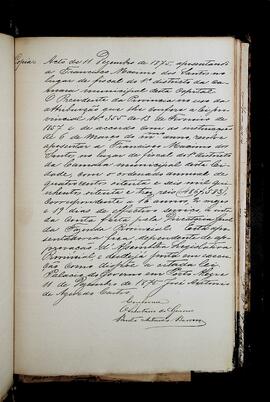 Copia. Acto de 11 Dezembro de 1875, apresentando
a Francisco Maximo dos Santos no
lugar de fiscal do 1º districto da Ca-
mara municipal desta Capital.
O Presidente da Provincia no uso da
attribuição que lhe confere a Lei pro-
vincial Nº 355 de 13 de Fevereiro de
1857 e de accordo com as instrucções
de 6 de Março do mesmo anno, resolve
apresentar a Francisco Maximo dos
Santos, no lugar de fiscal do 1º districto
da Camara municipal desta Ci-
dade, com o ordenado annual de
quatrocentos oitenta e seis mil
e tres reis
correspondente a 16 annos, mezes
e 19 dias de effectivo serviço, á vis-
ta da conta feita pela Directoria Geral
da Fazenda Provincial. Esta
sentadoria fica dependente da appro-
vação d'Assemblea Legislativa
Provincial e desde já posta em execu-
ção como dispõe a citada Lei.
Palacio do Governo em Porto Alegre
11 de Dezembro de 1875. José Antonio
de Azevedo Castro.
Conforme
O Secretario do Governo